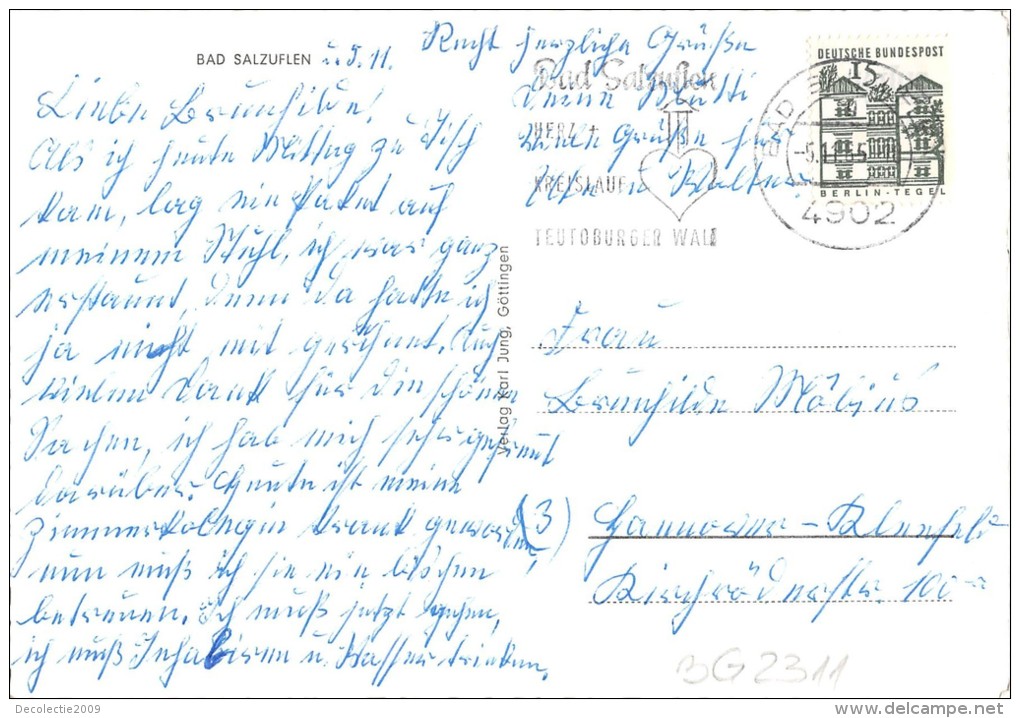 BAD SALZUFLEN u. 5. 11.
Liebe Brunhilde!
Als ich heute Mittag zu Tisch
kam, lag ein Paket auf
meinem Stuhl, ich war ganz
erstaunt, denn da hatte ich
ja nicht mit gerechnet. Auch
vielen Dank für die schönen
Sachen, ich hab mich sehr gefreut
darüber. Heute ist meine
Zimmerkollegin krank geworden,
nun muß ich sie ein bischen
betreuen. Ich muß jetzt gehen,
ich muß Inhalieren u. Wasser trinken.
Recht herzliche Grüße
Deine Mutti
viele Grüße für
Walter.
Verlag Karl Jung, Göttingen
Bad Salzuflen
HERZ +
KREISLAUF
TEUTOBURGER WALD
DEUTSCHE BUNDESPOST
15
BERLIN-TEGEL
BAD
-5.11.65
4902
Frau
Brunhilde Möbius
(3) Hannover-Kleefeld
Kirchröderstr. 100
BG2311
Decolectie2009
delcampe.net